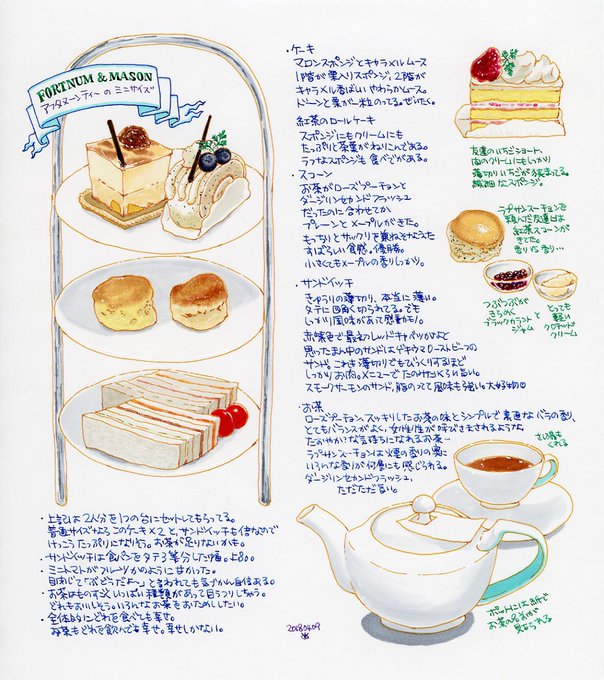 FORTNUM & MASON
アフタヌーンティーの ミニサイズ
・ケーキ
マロンスポンジとキャラメルムース
1階が栗入りスポンジ、2階が
キャラメル香ばしい やわらかムース。
ドーンと栗が一粒のってる。ぜいたく。
紅茶のロールケーキ
スポンジにもクリームにも
たっぷりと茶葉がねりこんである。
ラフなスポンジも食べごたえがある。
・スコーン
お茶がローズプーチョンと
ダージリンセカンドフラッシュ
だったのに合わせてか
プレーンとメープルがきた。
もっちりとサックリを兼ねそなえた
すばらしい食感。優勝。
小さくてもメープルの香りしっかり。
・サンドイッチ
きゅうりの薄切り、本当に薄い。
タテに四角く切られてる。でも
しっかり風味があって感動かも。
赤紫色で最初レッドキャベツかなと
思ったまん中のサンドはゲキウマローストビーフの
サンド。これも薄切りでもびっくりするほど
しっかりお肉。メニューでたのみたいくらい旨い。
スモークサーモンのサンド、脂のってて風味も強い。大好物♡
・お茶
ローズプーチョン、スッキリしたお茶の味とシンプルで素直なバラの香り、
とてもバランスがよく、女性性が呼びさまされるような
たおやか？な気持ちになれるお茶…
ラプサンスーチョンは煙の香りの奥に
いろんな香りが何層にも感じられる。
ダージリンセカンドフラッシュ、
ただただ旨い。
友達のいちごショート、
肉のクリームにもしっかり
薄切りいちごが挟まってる。
繊細なスポンジ。
ラプサンスーチョンを
頼んだ友達は
紅茶スコーンが
きてた。
香りVS香り…
つぶつぶが
きらめく
ブラックカラント
ジャム
と
とっても
軽い
クロテッド
クリーム
さし湯も
くれる
ポットには紙で
お茶の名前が
見られる
・上記は2人分を1つの台にセットしてもらってる。
普通サイズならこのケーキ×2と、サンドイッチも倍なので
けっこうたっぷりになりそう。お茶が足りないかも。
・サンドイッチは食パンをタテ3等分した幅。
・ミニトマトがフルーツかのように甘かった。
目閉じて「ぶどうだよ〜」と言われても気づかん自信ある
・お茶はものすごくいっぱい種類があって目うつりしちゃう。
どれもおいしそう。いろんなお茶をおためししたい。
・全体的にどれを食べても幸せ。
お茶もどれを飲んでも幸せ。幸せしかない。
2018.04.09